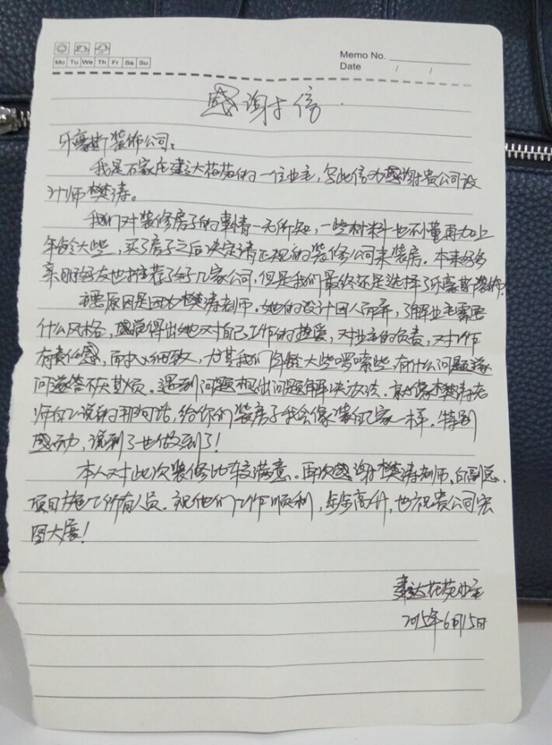 Memo No.
Mo Tu We Th Fr Sa Su
Date / /
感谢信
牙豪斯装饰公司:
我是石家庄建达花苑的一位业主,写此信为感谢贵公司设
计师樊涛。
我们对装修房子的事情一无所知,一些材料也不懂再加上
年龄大些,买了房子之后决定请正规的装修公司来装房。本来好多
亲朋好友也推荐了好几家公司,但是我们最终还是选择了牙豪斯装饰。
主要原因是因为樊涛老师,她的设计因人而异,了解业主需要
什么风格,感觉得出她对自己工作的热爱,对业主的负责,对工作
有责任感,而且心细致,尤其我们年龄大些啰嗦些,有什么问题逐
问逐答不厌其烦。遇到问题想出问题解决办法。就像樊涛老
师自己说的那句话,给你们装房子我会像装自己家一样。特别
感动,说到了也做到了!
本人对此次装修比较满意。再次感谢樊涛老师,白副总,
项目施工所有人员。祝他们工作顺利,步步高升,也祝贵公司宏
图大展!
建达花苑业主
2015年6月15日